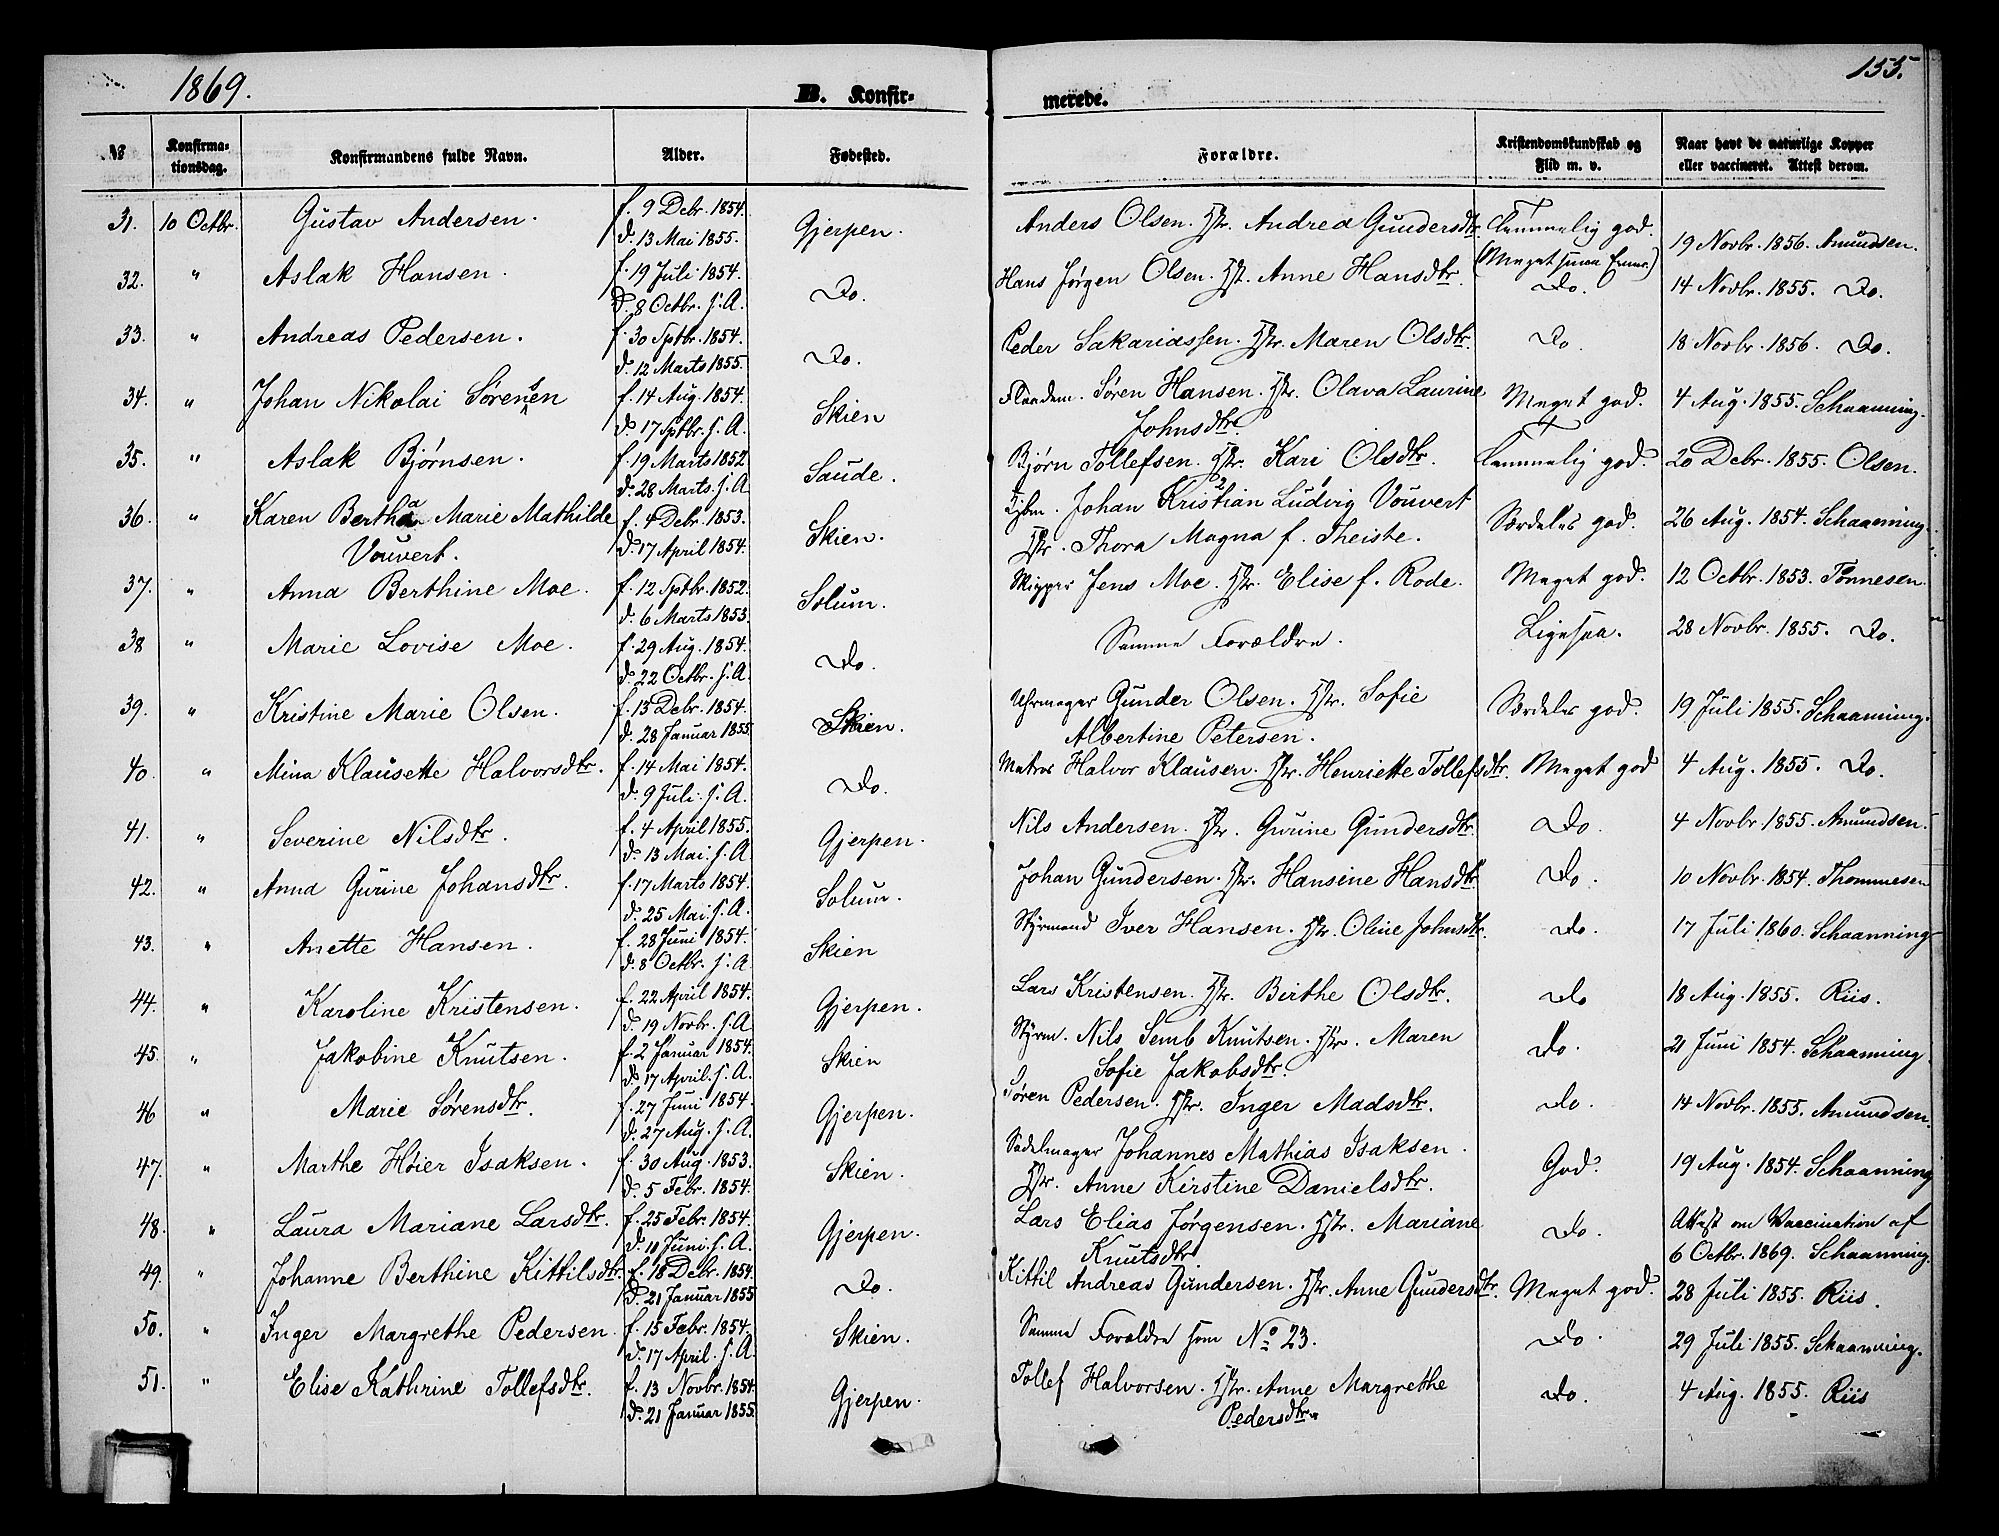 1869.
B. Konfir-
merede.
155.
№ Konfirma-tionsdag. Konfirmandens fulde Navn. Alder. Fødested. Forældre. Kristendomskundskab og Flid m. v. Naar havt de naturlige Kopper eller vaccineret. Attest derom.
31. 10 Octbr. Gustav Andersen. f. 9 Debr. 1854. Gjerpen. Anders Olsen. Hstr. Andrea Gundersdtr. Temmelig god. 19 Novbr. 1856. Amundsen.
d. 13 Mai 1855. (Meget smaa Evner)
32. " Aslak Hansen. f. 19 Juli 1854. Do. Hans Jørgen Olsen. Hst. Anne Hansdtr. Do. 14 Novbr. 1855. Do.
d. 8 Octbr. s. A.
33. " Andreas Pedersen. f. 30 Sptbr. 1854. Do. Peder Sakariassen. Hstr. Maren Olsdtr. Do 18 Novbr. 1856. Do.
d. 12 Marts 1855.
34. " Johan Nikolai Sørensen f. 14 Aug. 1854. Skien Søren Hansen. Hstr. Olava Laurine Meget god. 4 Aug. 1855. Schaanning.
d. 17 Sptbr. s. A. Johnsdtr.
35. " Aslak Bjørnsen. f. 19 Marts 1852 Saude. Bjørn Tollefsen. Hstr. Kari Olsdtr. Temmelig god. 20 Debr. 1855. Olsen.
d. 28 Marts. s. A
36. " Karen Bertha Marie Mathilde f. 4 Debr. 1853. Skien. Kjbm. Johan Kristian Ludvig Vouvert Særdeles god. 26 Aug. 1854. Schaanning.
Vouvert. d. 17 April 1854. Hstr. Thora Magna f. Theiste.
37. " Anna Berthine Moe. f. 12 Sptbr. 1852. Solum. Skipper Jens Moe. Hstr. Elise f. Rode. Meget god. 12 Octbr. 1853. Tønnesen.
d. 6 Marts 1853.
38 " Marie Lovise Moe. f. 29 Aug. 1854. Do. Samme Forældre. Ligesaa. 28 Novbr. 1855. Do.
d. 22 Octbr. s. A
39. " Kristine Marie Olsen. f. 13 Debr. 1854. Skien. Uhrmager Gunder Olsen. Hstr. Sofie Særdeles god. 19 Juli 1855. Schaanning.
d. 28 Januar 1855 Albertine Petersen.
40. " Mina Klausette Halvorsdtr. f. 14 Mai 1854. Do. Matros Halvor Klausen. Hstr. Henriette Tollefsdtr. Meget god 4 Aug. 1855. Do.
d. 9 Juli. s. A.
41. " Severine Nilsdtr. f. 4 April 1855. Gjerpen. Nils Andersen. Hstr. Gurine Gundersdtr. Do. 4 Novbr. 1855. Amundsen.
d. 13 Mai. s. A
42. " Anna Gurine Johansdtr. f. 17 Marts 1854. Solum. Johan Gundersen. Hstr. Hansine Hansdtr. Do. 10 Novbr. 1854. Thommesen
d. 25 Mai. s. A.
43. " Anette Hansen. f. 28 Juni 1854. Skien Styrmand Iver Hansen. Hstr. Oline Johnsdtr. Do. 17 Juli 1860. Schaanning
d. 8 Octbr. s. A
44. " Karoline Kristensen. f. 22 April 1854. Gjerpen. Lars Kristensen. Hstr. Birthe Olsdtr. Do 18 Aug. 1855. Riis.
d. 19 Novbr. s. A
45. " Jakobine Knutsen. f. 2 Januar 1854. Skien Styrm. Nils Semb Knutsen. Hstr. Maren Do. 21 Juni 1854. Schaanning
d. 17 April. s. A. Sofie Jakobsdtr.
46 " Marie Sørensdtr. f. 27 Juni 1854. Gjerpen. Søren Pedersen. Hstr. Inger Madsdtr. Do. 14 Novbr. 1855. Amundsen.
d. 27 Aug. s. A
47. " Marthe Høier Isaksen. f. 30 Aug. 1853. Skien. Sadelmager Johannes Mathias Isaksen God. 19 Aug. 1854. Schaanning
d. 5 Febr. 1854. Hstr. Anne Kirstine Danielsdtr.
48. " Laura Mariane Larsdtr. f. 25 Febr. 1854. Gjerpen. Lars Elias Jørgensen. Hstr. Mariane Do. Attest om Vaccination af
d. 11 Juni. s. A. Knutsdtr 6 Octbr. 1869. Schaanning.
49. " Johanne Berthine Kittilsdtr. f. 18 Debr. 1854. Do. Kittil Andreas Gundersen. Hstr. Anne Gundersdtr. Meget god. 28 Juli 1855. Riis.
d. 21 Januar 1855
50. " Inger Margrethe Pedersen. f. 15 Febr. 1854. Skien. Samme Forældre som No 23. Do. 29 Juli 1855. Schaanning.
d. 17 April. s. A
51. " Elise Kathrine Tollefsdtr. f. 13 Novbr. 1854. Gjerpen. Tollef Halvorsen. Hstr. Anne Margrethe Do. 4 Aug. 1855. Riis
d. 21 Januar 1855. Pedersdtr.